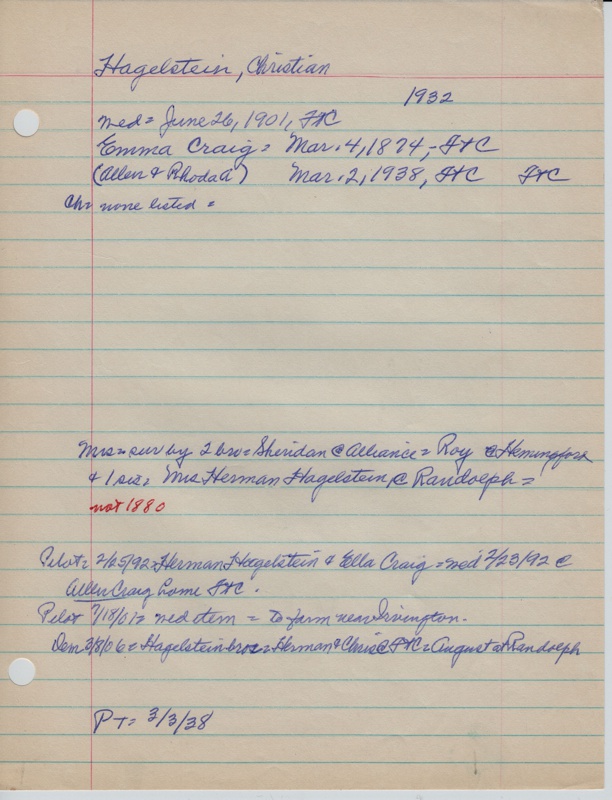 Hagelstein, Christian
1932
wed = June 26, 1901, FtC
Emma Craig = Mar. 4, 1874, - FtC
(Allen & Rhoda A) Mar. 2, 1938, FtC FtC
Ch = none listed =
Mrs = sur by 2 bro = Sheridan @ Alliance = Roy @ Hemingford
& 1 sis = Mrs Herman Hagelstein @ Randolph =
not 1880
Pilot = 2/25/92 = Herman Hagelstein & Ella Craig = wed 2/23/92 @
Allen Craig home FtC.
Pilot 7/18/01 = wed item = to farm near Irvington.
Dem 2/8/06 = Hagelstein bros = Herman & Chris @ FtC = August at Randolph
PT = 3/3/38